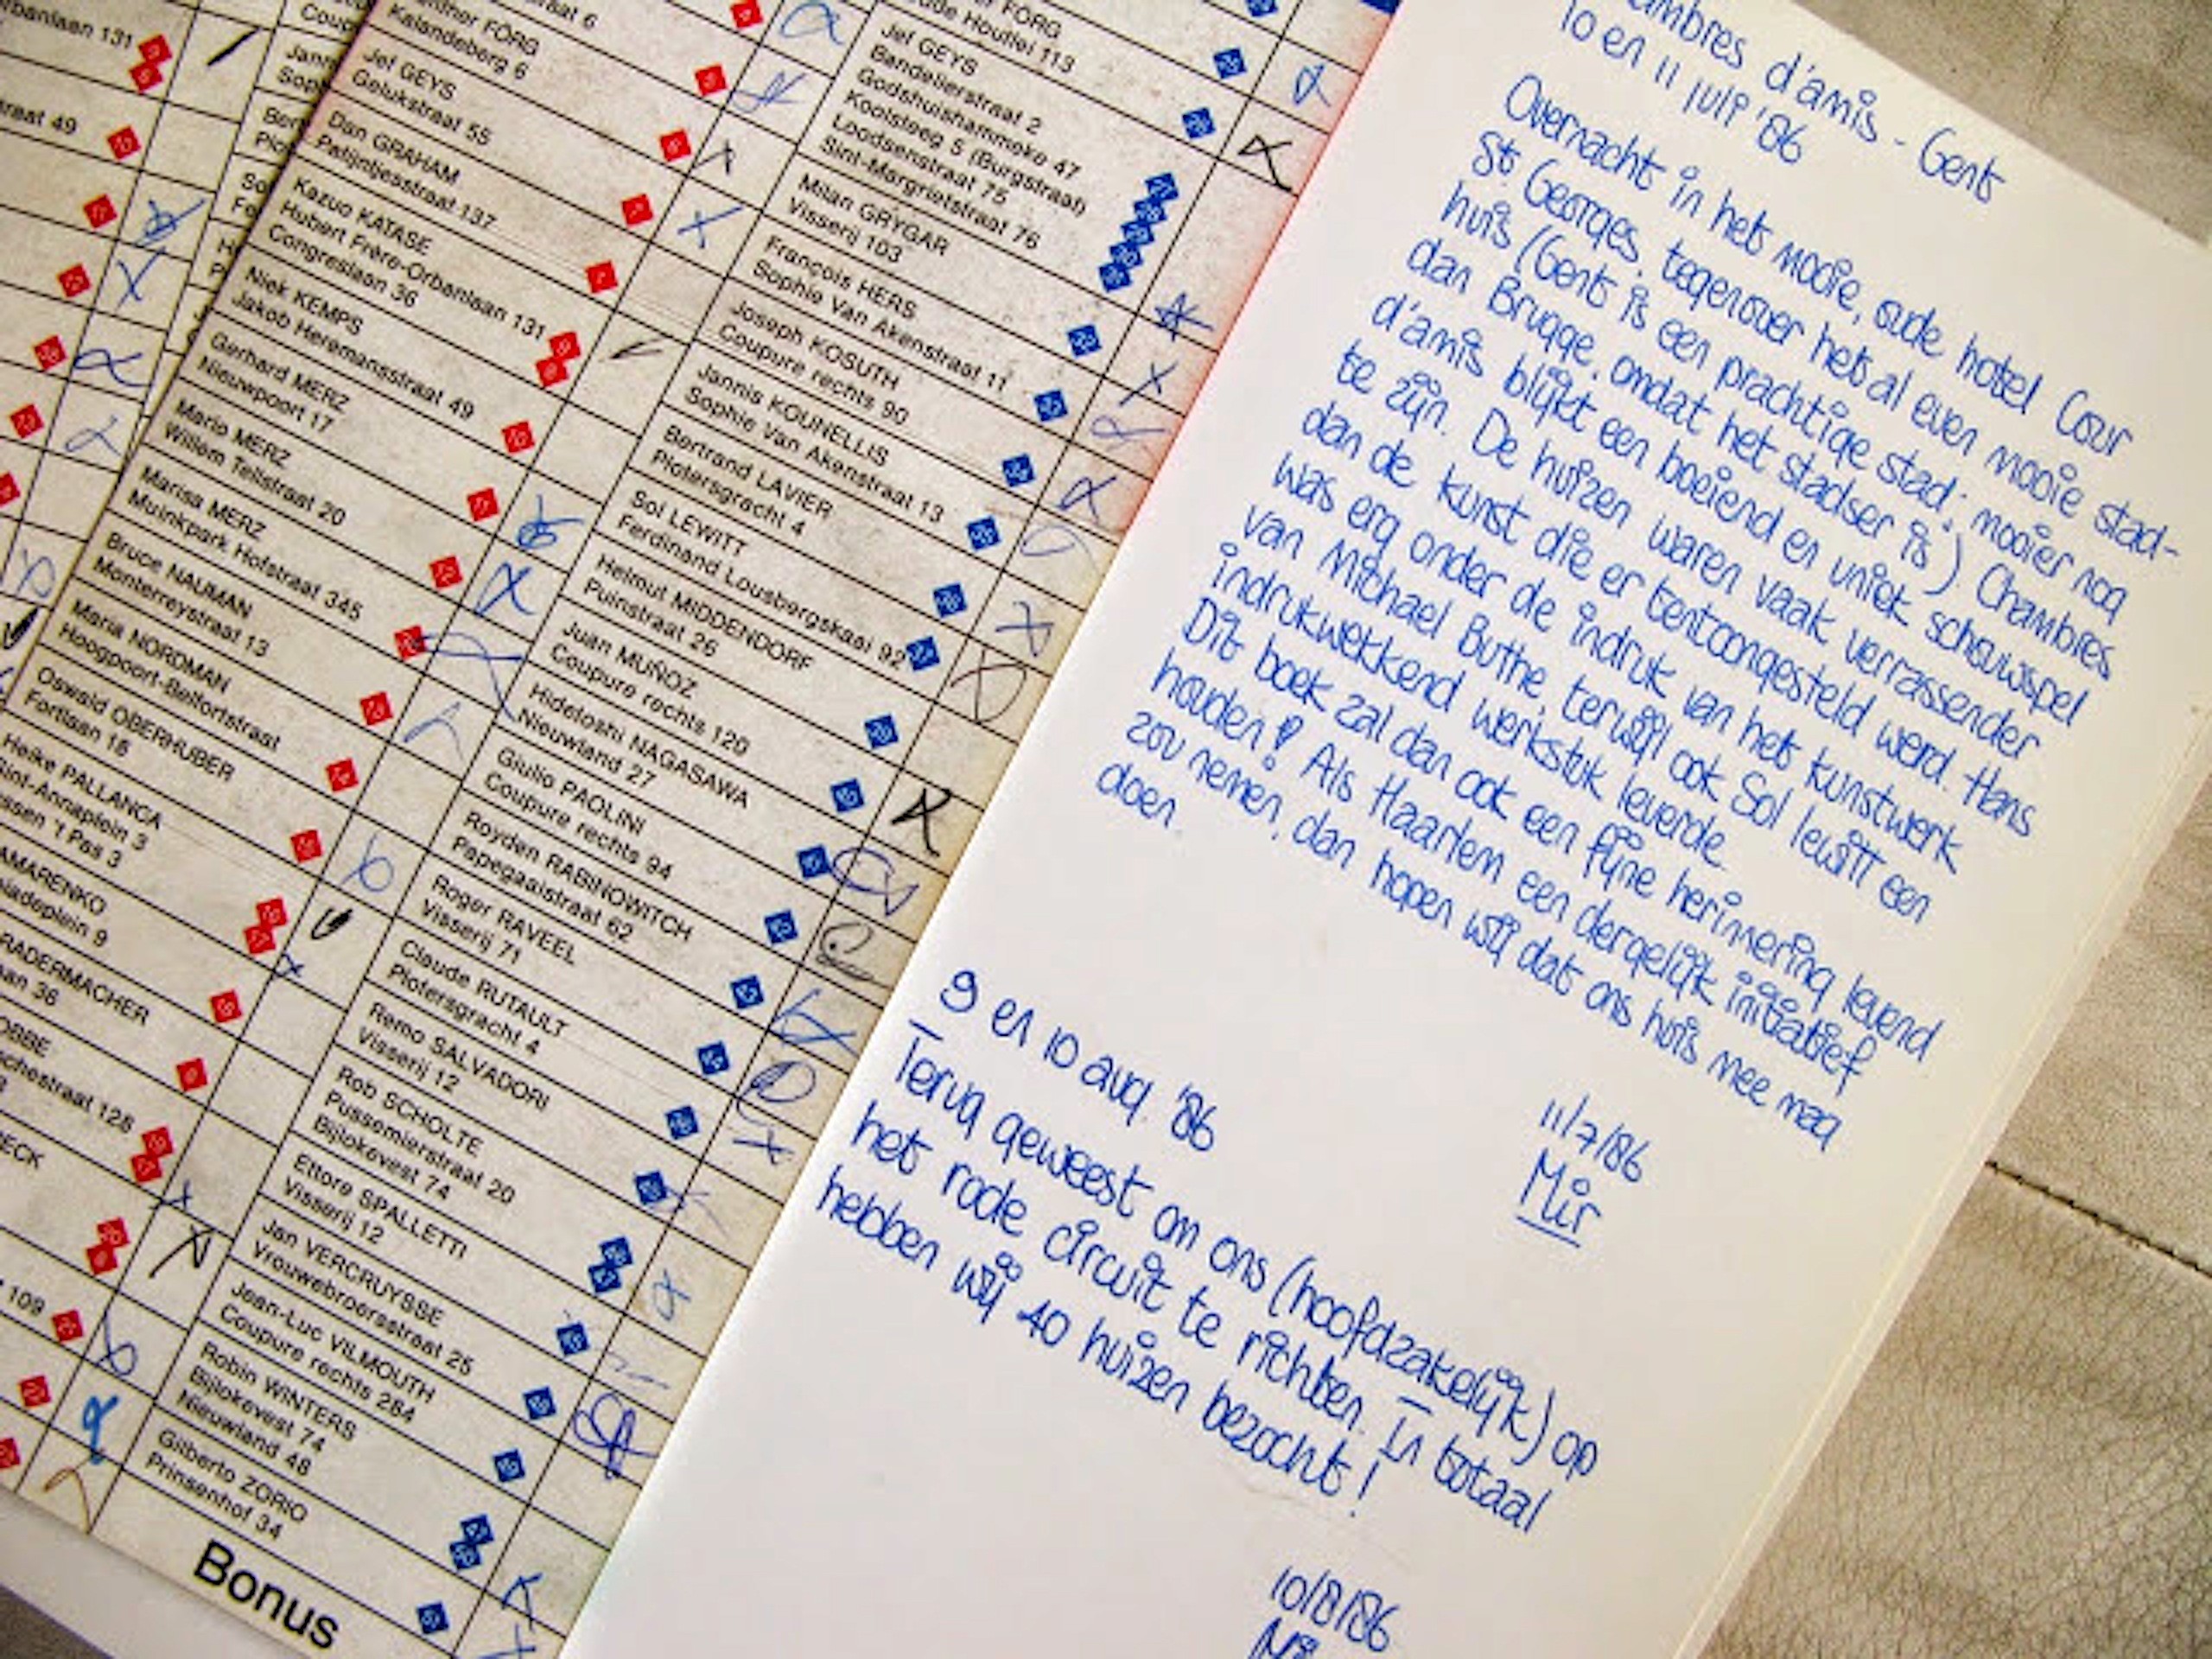 rbanlaan 131
straat 49
Coup
Jann
Sop
Bert
Pio
Sol
Fe
H
P
raat 6
FÖRG
Kalandeberg 6
Jef GEYS
Gelukstraat 55
Dan GRAHAM
Patijntjesstraat 137
Kazuo KATASE
Hubert Frère-Orbanlaan 131
Congreslaan 36
Niek KEMPS
Jakob Heremansstraat 49
Gerhard MERZ
Nieuwpoort 17
Mario MERZ
Willem Tellstraat 20
Marisa MERZ
Muinkpark Hofstraat 345
Bruce NAUMAN
Monterreystraat 13
Maria NORDMAN
Hoogpoort-Belfortstraat
Oswald OBERHUBER
Fortlaan 18
Heike PALLANCA
Sint-Annaplein 3
ssen 't Pas 3
AMARENKO
iadeplein 9
RADERMACHER
aan 36
OBBE
schestraat 128
ECK
109
FÖRG
ude Houtlei 113
Jef GEYS
Bandelierstraat 2
Godshuishammeke 47
Koolsteeg 5 (Burgstraat)
Loodsenstraat 75
Sint-Margrietstraat 76
Milan GRYGAR
Visserij 103
François HERS
Sophie Van Akenstraat 11
Joseph KOSUTH
Coupure rechts 90
Jannis KOUNELLIS
Sophie Van Akenstraat 13
Bertrand LAVIER
Plotersgracht 4
Sol LEWITT
Ferdinand Lousbergskaai 92
Helmut MIDDENDORF
Puinstraat 26
Juan MUÑOZ
Coupure rechts 120
Hidetoshi NAGASAWA
Nieuwland 27
Giulio PAOLINI
Coupure rechts 94
Royden RABINOWITCH
Papegaaistraat 62
Roger RAVEEL
Visserij 71
Claude RUTAULT
Plotersgracht 4
Remo SALVADORI
Visserij 12
Rob SCHOLTE
Pussemierstraat 20
Bijlokevest 74
Ettore SPALLETTI
Visserij 12
Jan VERCRUYSSE
Vrouwebroersstraat 25
Jean-Luc VILMOUTH
Coupure rechts 284
Robin WINTERS
Bijlokevest 74
Nieuwland 48
Gilberto ZORIO
Prinsenhof 34
Bonus
ambres d'amis - Gent
10 en 11 juli '86
Overnacht in het mooie, oude hotel Cour
St. Georges, tegenover het al even mooie stad-
huis (Gent is een prachtige stad; mooier nog
dan Brugge, omdat het stadser is) Chambres
d'amis blijkt een boeiend en uniek schouwspel
te zijn. De huizen waren vaak verrassender
dan de kunst die er tentoongesteld werd. Hans
was erg onder de indruk van het kunstwerk
van Michael Buthe, terwijl ook Sol lewitt een
indrukwekkend werkstuk leverde.
Dit boek zal dan ook een fijne herinnering levend
houden! Als Haarlem een dergelijk initiatief
zou nemen, dan hopen wij dat ons huis mee mag
doen.
11/7/86
Mir
9 en 10 aug. '86
Terug geweest om ons (hoofdzakelijk) op
het rode circuit te richten. In totaal
hebben wij 40 huizen bezocht!
10/8/86